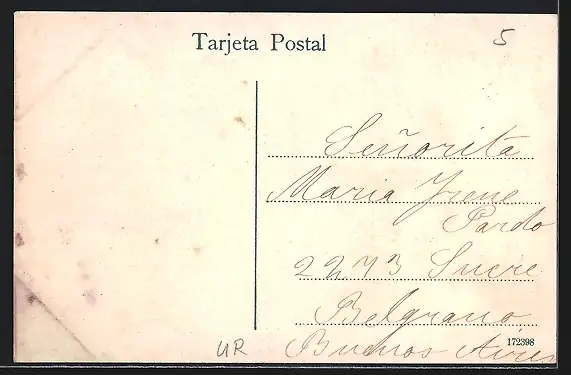 Tarjeta Postal
5
Señorita
Maria Yrene
Pardo
2273 Sucre
Belgrano
Buenos Aires
172398
UR